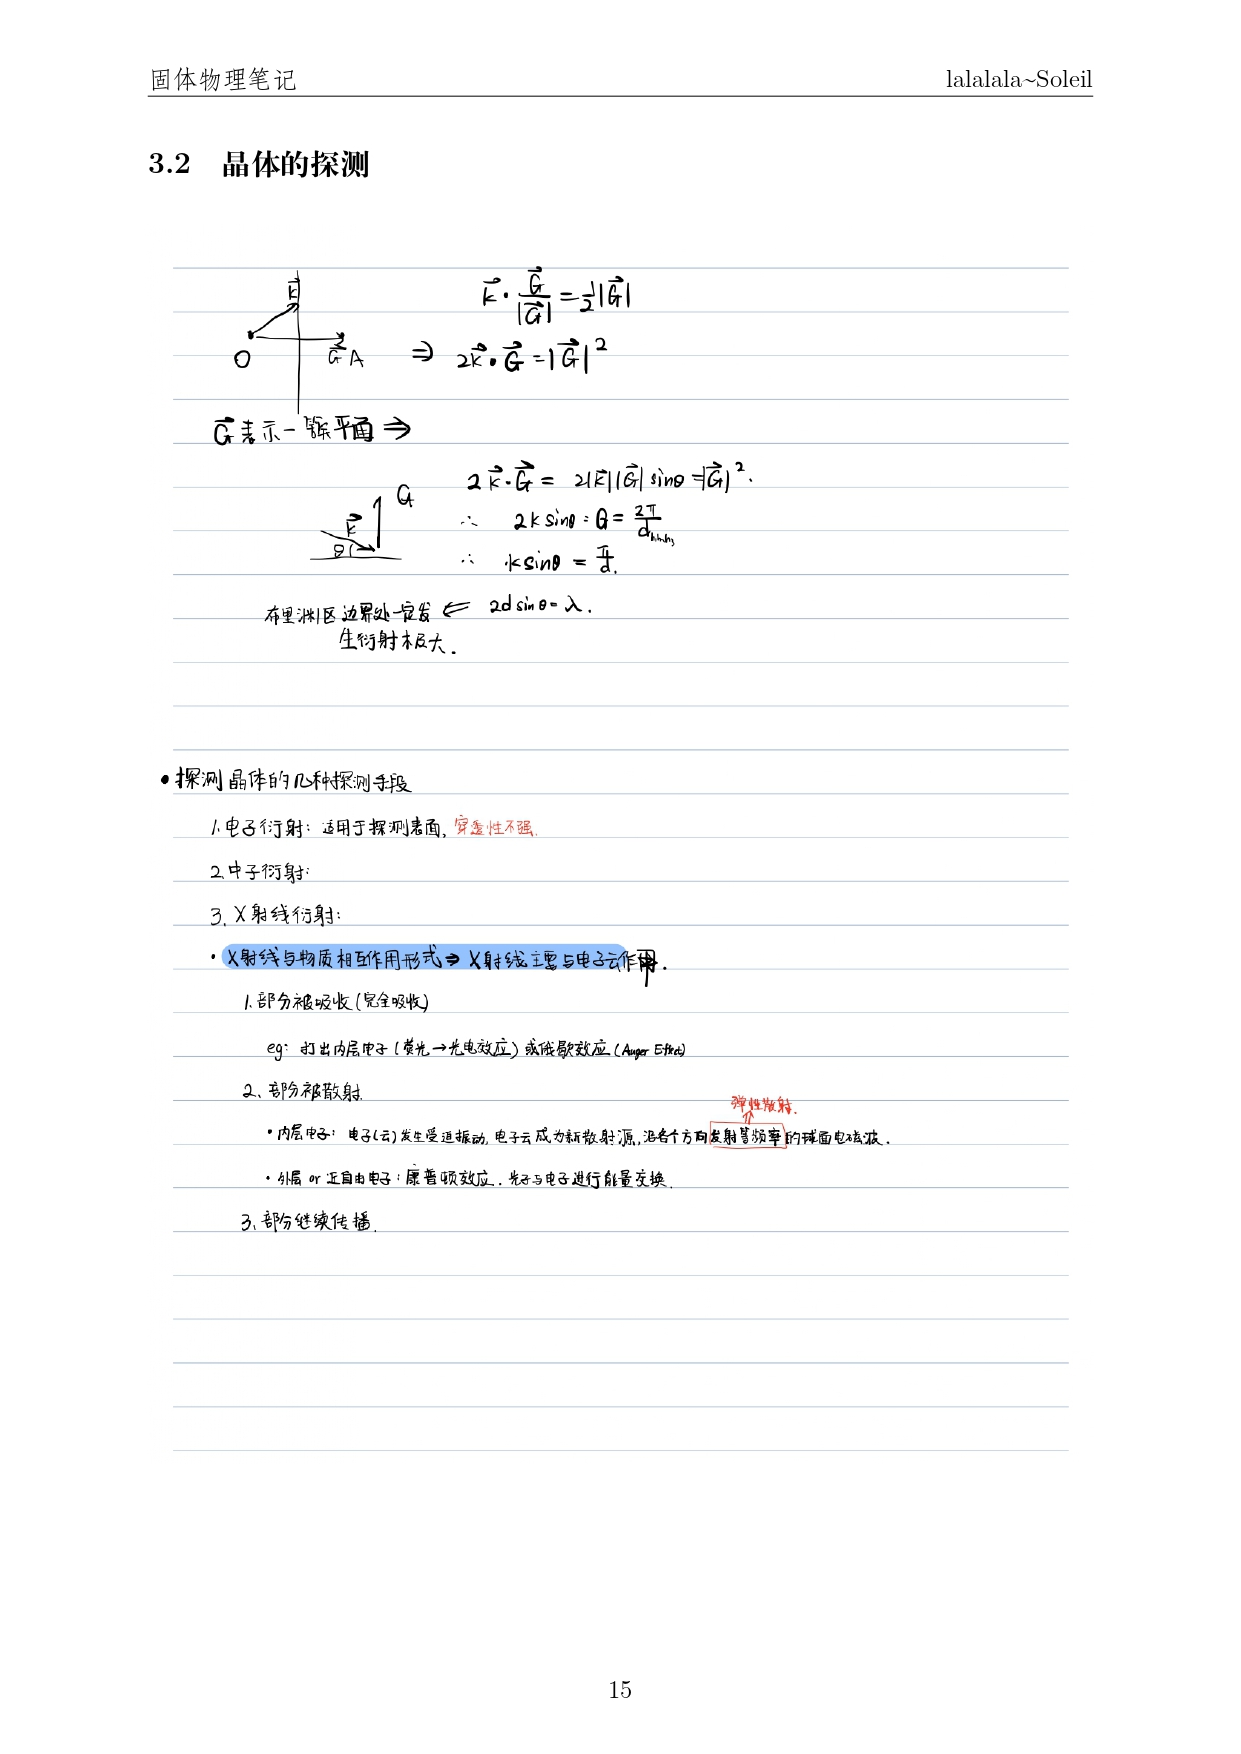 固体物理笔记 lalalala~Soleil
3.2 晶体的探测
k⃗ · G⃗/|G⃗| = ½|G⃗|
k⃗
O G⃗ A ⇒ 2k⃗·G⃗ = |G⃗|²
G⃗表示一族平面 ⇒
2k⃗·G⃗ = 2|k⃗||G⃗| sinθ = |G⃗|².
G
k⃗ ∴ 2k sinθ = G = 2π/d_{h₁h₂h₃}
θ ∴ k sinθ = π/d.
布里渊区边界处一定发 ⇐ 2d sinθ = λ.
生衍射极大.
• 探测晶体的几种探测手段
1. 电子衍射: 适用于探测表面, 穿透性不强.
2. 中子衍射:
3. X射线衍射:
• X射线与物质相互作用形式 ⇒ X射线主要与电子云作用.
1. 部分被吸收 (完全吸收)
eg: 打出内层电子 (荧光→光电效应) 或俄歇效应 (Auger Effect)
2. 部分被散射.
弹性散射.
• 内层电子: 电子(云)发生受迫振动, 电子云成为新散射源, 沿各个方向发射等频率的球面电磁波.
• 外层 or 近自由电子: 康普顿效应. 光子与电子进行能量交换.
3. 部分继续传播.
15